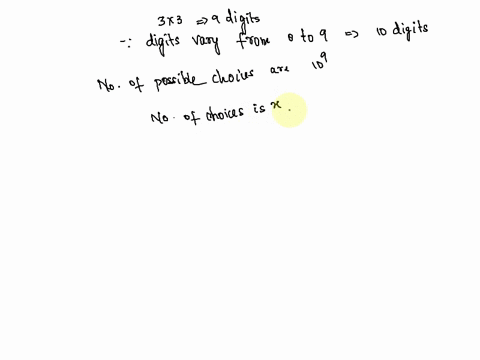 3x3 ⇒ 9 digits
∵ digits vary from 0 to 9 ⇒ 10 digits
No. of possible choices are 10⁹
No. of choices is x.